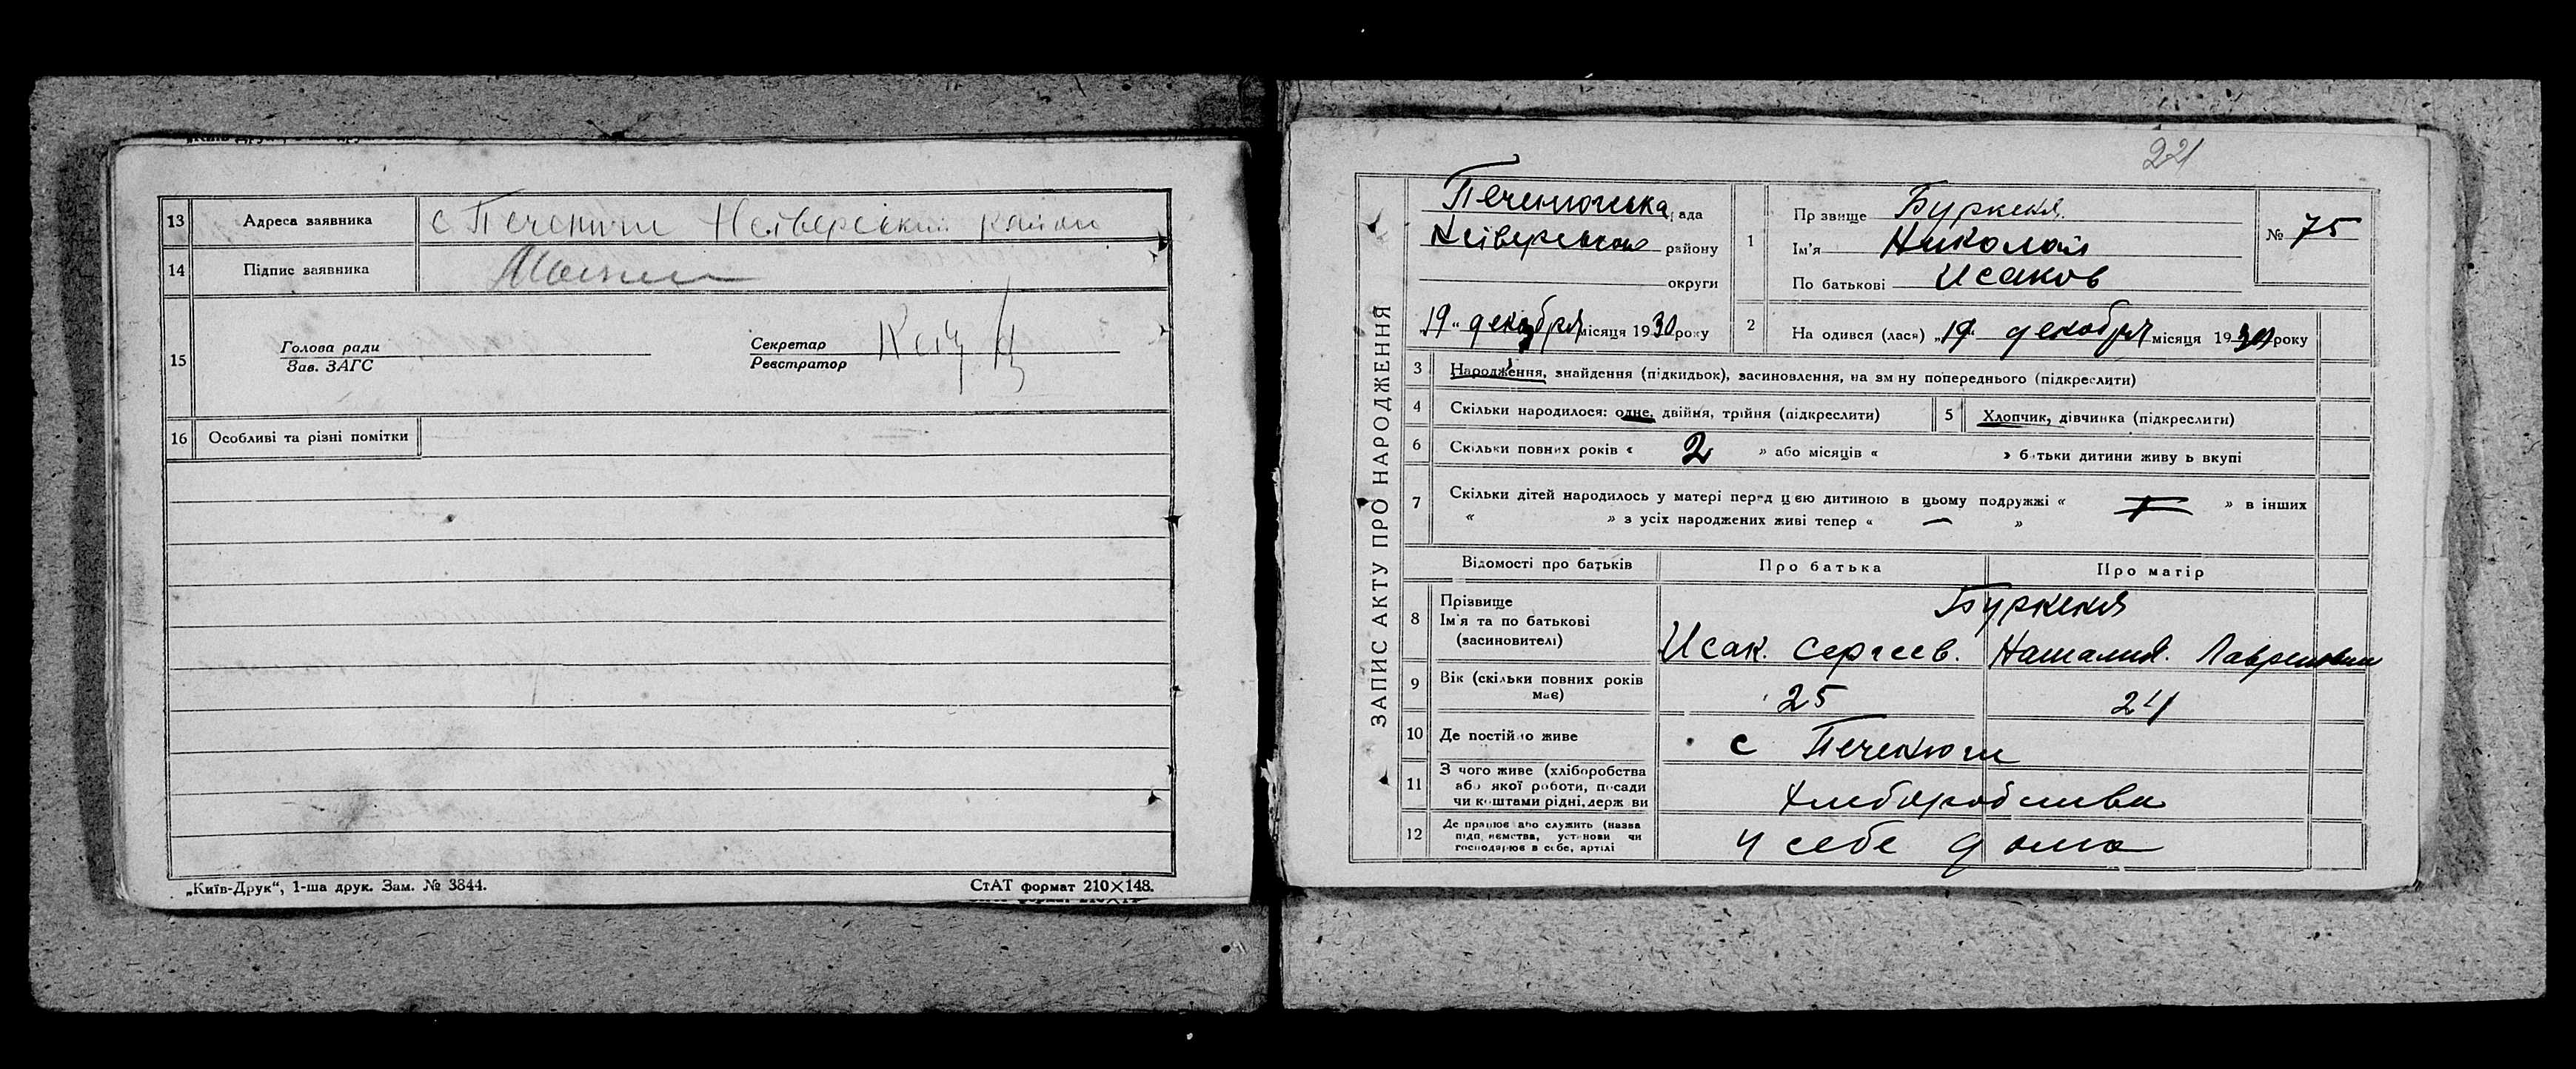 13 Адреса заявника с Печенюги Н-Сіверський район
14 Підпис заявника
15 Голова ради
Зав. ЗАГС
Секретар
Реєстратор
16 Особливі та різні помітки
„Київ-Друк“, 1-ша друк. Зам. № 3844.
СтАТ формат 210×148.
221
ЗАПИС АКТУ ПРО НАРОДЖЕННЯ
Печенюгська рада
району
округи
„19“ декабря місяця 1930 року
1 Прізвище
Ім'я Николай
По батькові Исаков
№ 75
2 Народився (лася) „19“ декабря місяця 1930 року
3 Народження, знайдення (підкидьок), засиновлення, на зміну попереднього (підкреслити)
4 Скільки народилося: одне, двійня, трійня (підкреслити)
5 Хлопчик, дівчинка (підкреслити)
6 Скільки повних років « 2 » або місяців « » батьки дитини живуть вкупі
7 Скільки дітей народилось у матері перед цією дитиною в цьому подружжі « » в інших
« » з усіх народжених живі тепер « — »
Відомості про батьків Про батька Про матір
8 Прізвище
Ім'я та по батькові
(засиновителі)
Исак. Сергеев. Наталия.
9 Вік (скільки повних років
має) 25 24
10 Де постійно живе с Печенюги
11 З чого живе (хліборобства
або якої роботи, посади
чи коштами рідні, держави
12 Де працює або служить (назва
підприємства, установи чи
господарює в себе, артілі
у себе дома